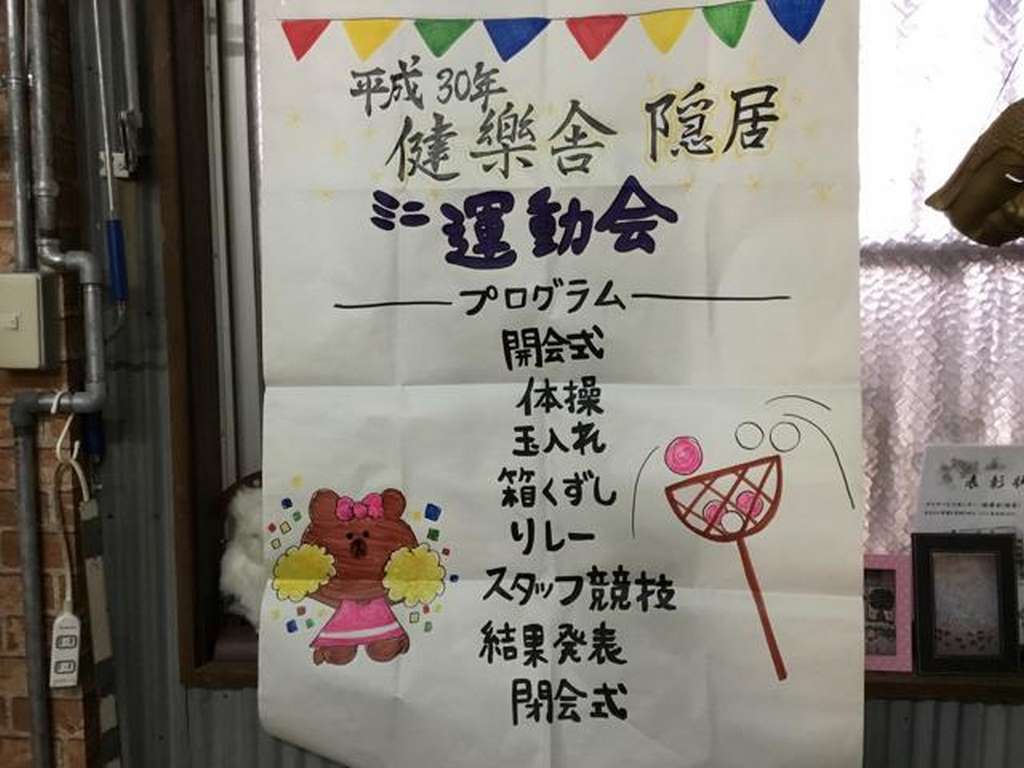 平成30年
健樂舎 隠居
ミニ運動会
プログラム
開会式
体操
玉入れ
箱くずし
リレー
スタッフ競技
結果発表
閉会式
表彰状